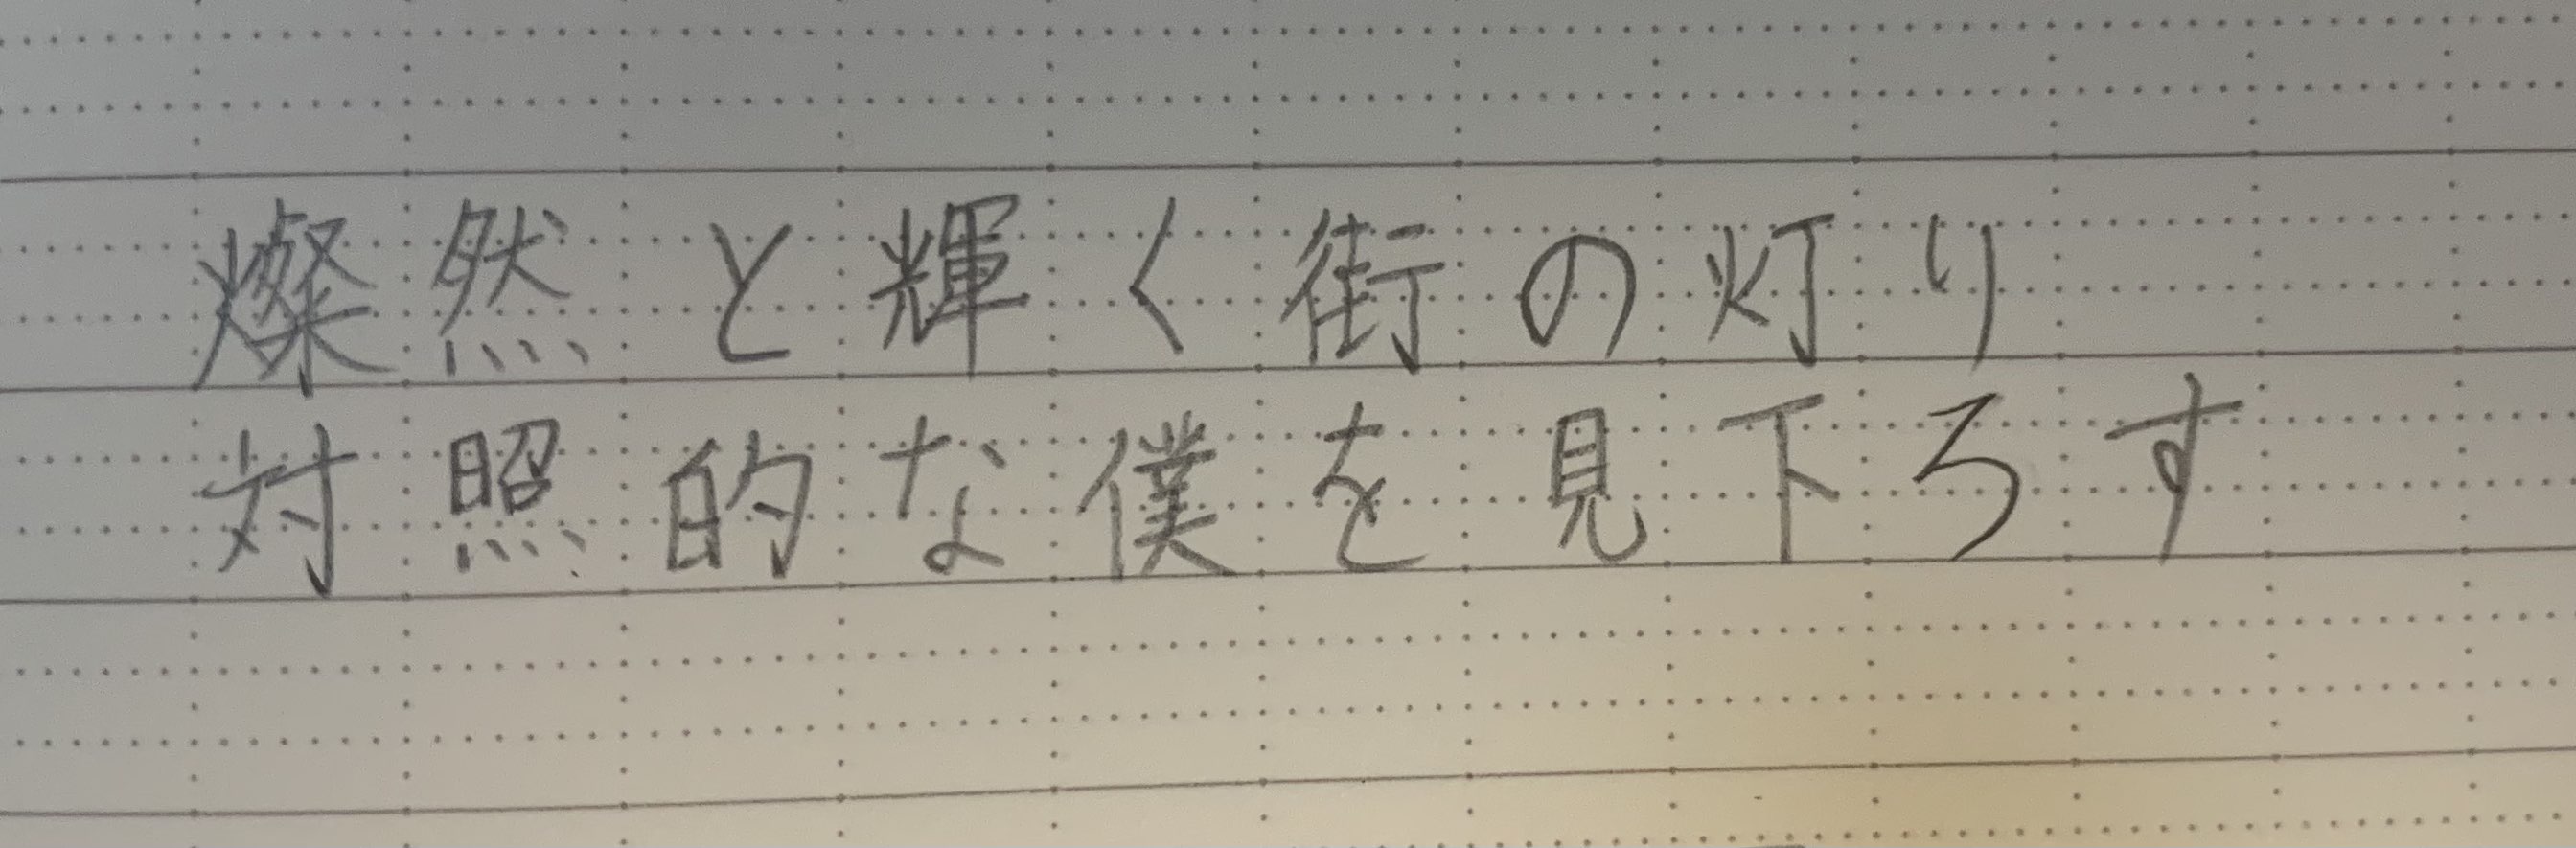 燦然と輝く街の灯り
対照的な僕を見下ろす